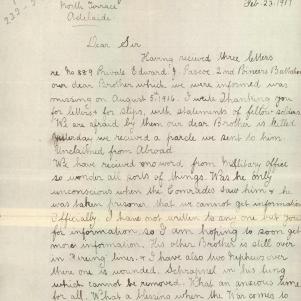 North Terrace
Adelaide.
Feb. 23. 1917
Dear Sir
Having recieved three letters
re No 889 Private Edward J. Pascoe 2nd Pioneers Battalion
our dear Brother which we were informed was
missing on August 5th 1916. I write thanking you
for letters & for slips, with statements of fellow-soldiers
We are afraid by them our dear Brother is killed
Yesterday we recieved a parcle we sent to him
Unclaimed from Abroad
We have recieved no word from Military office
so wonder all sorts of things. Was he only
unconscious when the Comrades saw him & he
was taken prisoner, that we cannot get information
Officially. I have not written to any one but you
for information, so I am hoping to soon get
more information. His other Brother is still over
in Firing lines, & I have also two Nephews over
there one is wounded. Schrapnel in his lung
which cannot be removed. What an anxious time
for all. What a blessing when the War comes to